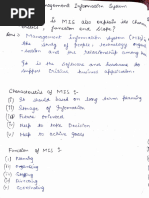 Management Information System
What is MSS also explain its chara
cteristics - function and scope?
Ans:- Management Information System (MIS) is
the study of people, technology, organi
and the relationship among
It is the software and hardware to
support critical business application.
Characteristics of MSS :-
(I) It should based on long term planning
(II) Storage of Information
(III) Future oriented
(IV) Help to take Decision
(V) Help to achieve goals
Function of MSS :-
(I) Planning
(II) Organizing
(III) Staffing
(IV) Directing
(V) Controlling